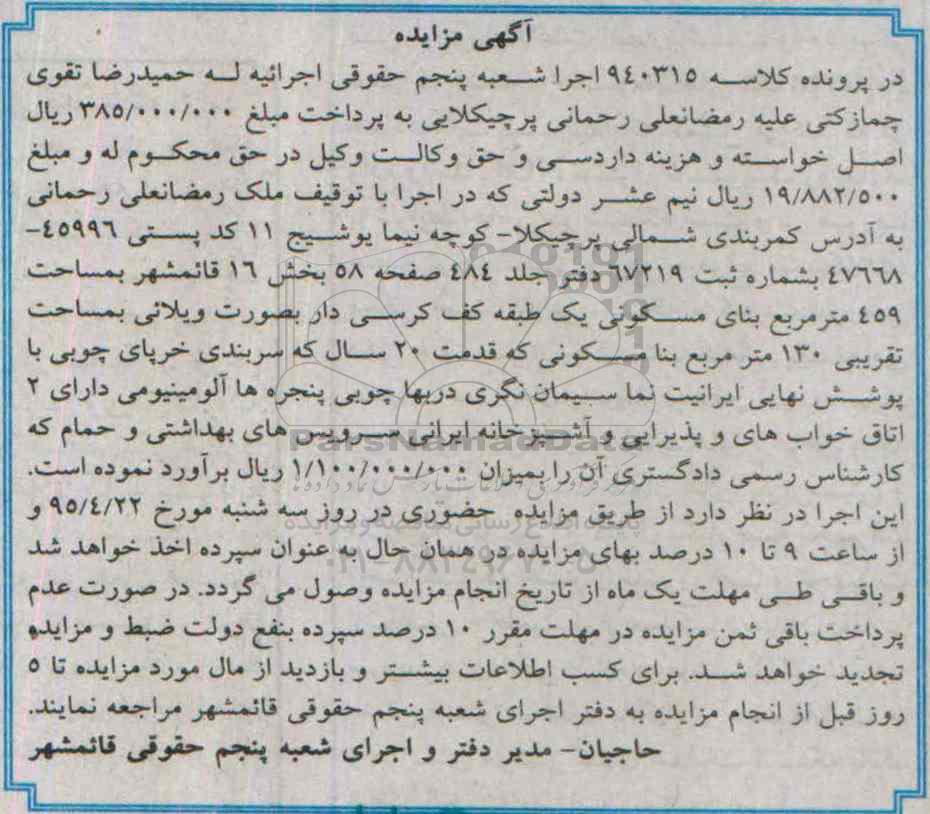 آگهی مزایده
در پرونده کلاسه ۹۴۰۳۱۵ اجرا شعبه پنجم حقوقی اجرائیه له حمیدرضا تقوی
چمازکتی علیه رمضانعلی رحمانی پرچیکلایی به پرداخت مبلغ ۳۸۵/۰۰۰/۰۰۰ ریال
اصل خواسته و هزینه داردسی و حق وکالت وکیل در حق محکوم له و مبلغ
۱۹/۸۸۲/۵۰۰ ریال نیم عشر دولتی که در اجرا با توقیف ملک رمضانعلی رحمانی
به آدرس کمربندی شمالی پرچیکلا- کوچه نیما یوشیج ۱۱ کد پستی ۴۵۹۹۶-
۴۷۶۶۸ بشماره ثبت ۶۷۲۱۹ دفتر جلد ۴۸۴ صفحه ۵۸ بخش ۱۶ قائمشهر بمساحت
۴۵۹ مترمربع بنای مسکونی یک طبقه کف کرسی دار بصورت ویلائی بمساحت
تقریبی ۱۳۰ متر مربع بنا مسکونی که قدمت ۲۰ سال که سربندی خرپای چوبی با
پوشش نهایی ایرانیت نما سیمان نگری دربها چوبی پنجره ها آلومینیومی دارای ۲
اتاق خواب های و پذیرایی و آشپزخانه ایرانی سرویس های بهداشتی و حمام که
کارشناس رسمی دادگستری آن را بمیزان ۱/۱۰۰/۰۰۰/۰۰۰ ریال برآورد نموده است.
این اجرا در نظر دارد از طریق مزایده حضوری در روز سه شنبه مورخ ۹۵/۴/۲۲ و
از ساعت ۹ تا ۱۰ درصد بهای مزایده در همان حال به عنوان سپرده اخذ خواهد شد
و باقی طی مهلت یک ماه از تاریخ انجام مزایده وصول می گردد. در صورت عدم
پرداخت باقی ثمن مزایده در مهلت مقرر ۱۰ درصد سپرده بنفع دولت ضبط و مزایده
تجدید خواهد شد. برای کسب اطلاعات بیشتر و بازدید از مال مورد مزایده تا ۵
روز قبل از انجام مزایده به دفتر اجرای شعبه پنجم حقوقی قائمشهر مراجعه نمایند.
حاجیان- مدیر دفتر و اجرای شعبه پنجم حقوقی قائمشهر
ParsNamadData